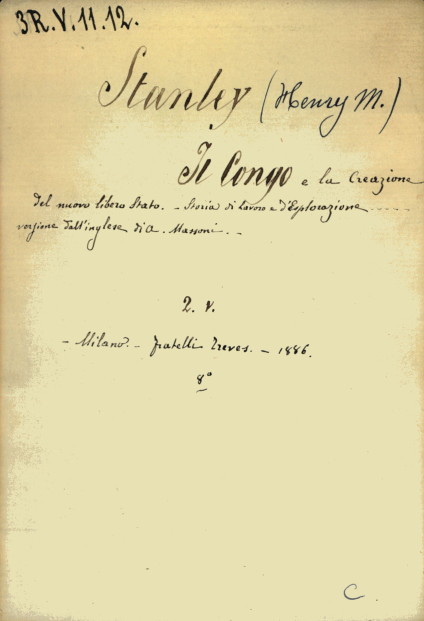 3R.V.11.12.
Stanley (Henry M.)
Il Congo e la Creazione
del nuovo libero Stato. - Storia di lavoro e d'Esplorazione - - - - -
versione dall'inglese di A. Massoni. -
2. v.
- Milano. - fratelli Treves. - 1886.
8°
C